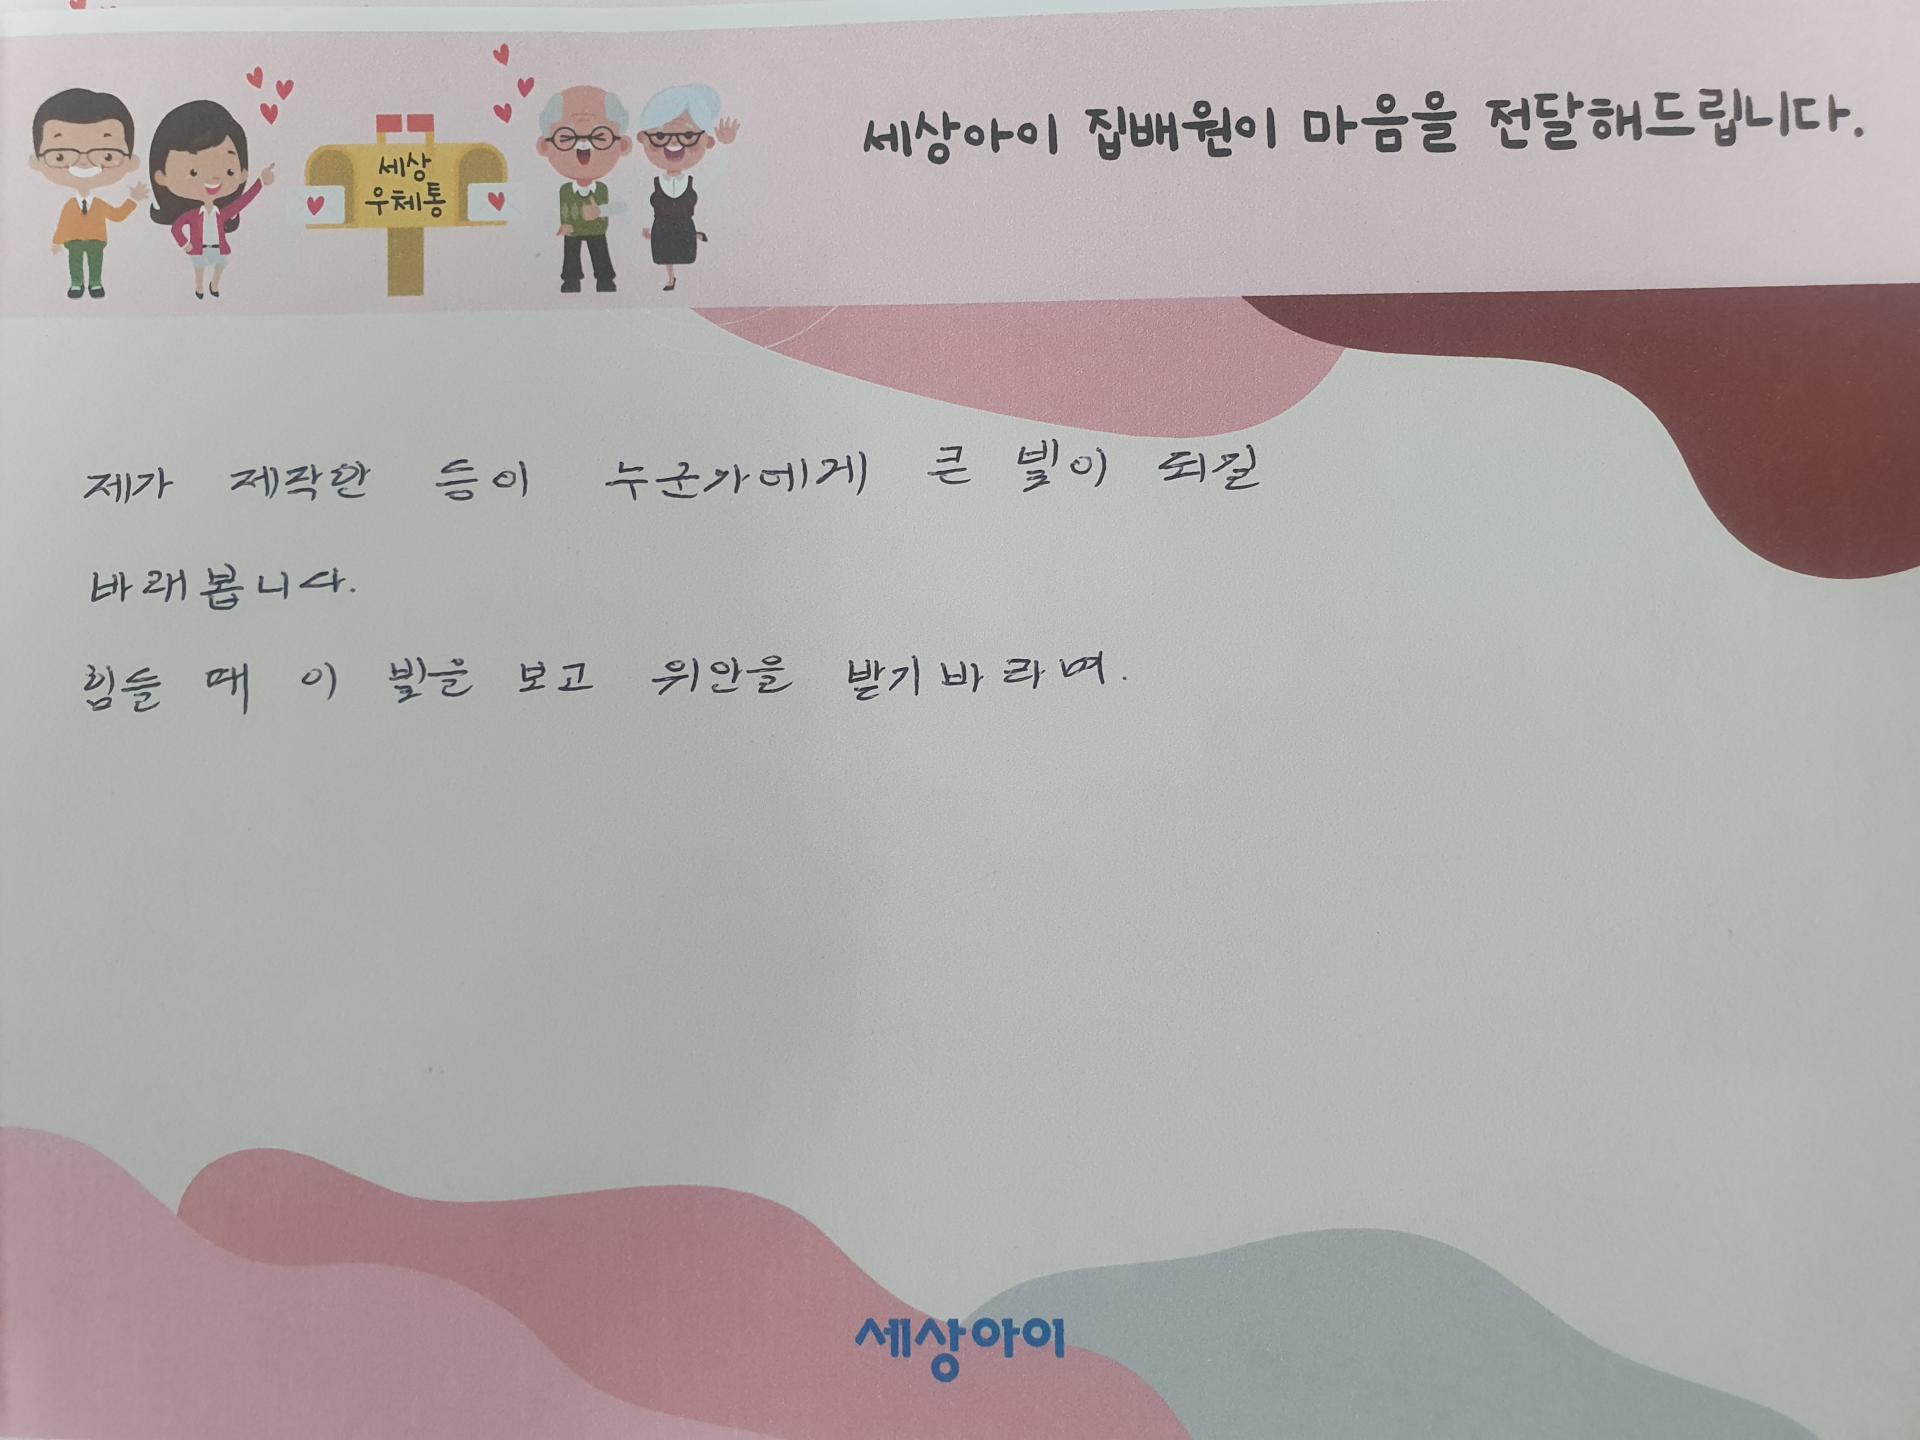 세상아이 집배원이 마음을 전달해드립니다.
세상
우체통
제가 제작한 등이 누군가에게 큰 빛이 되길
바래봅니다.
힘들 때 이 빛을 보고 위안을 받기 바라며.
세상아이